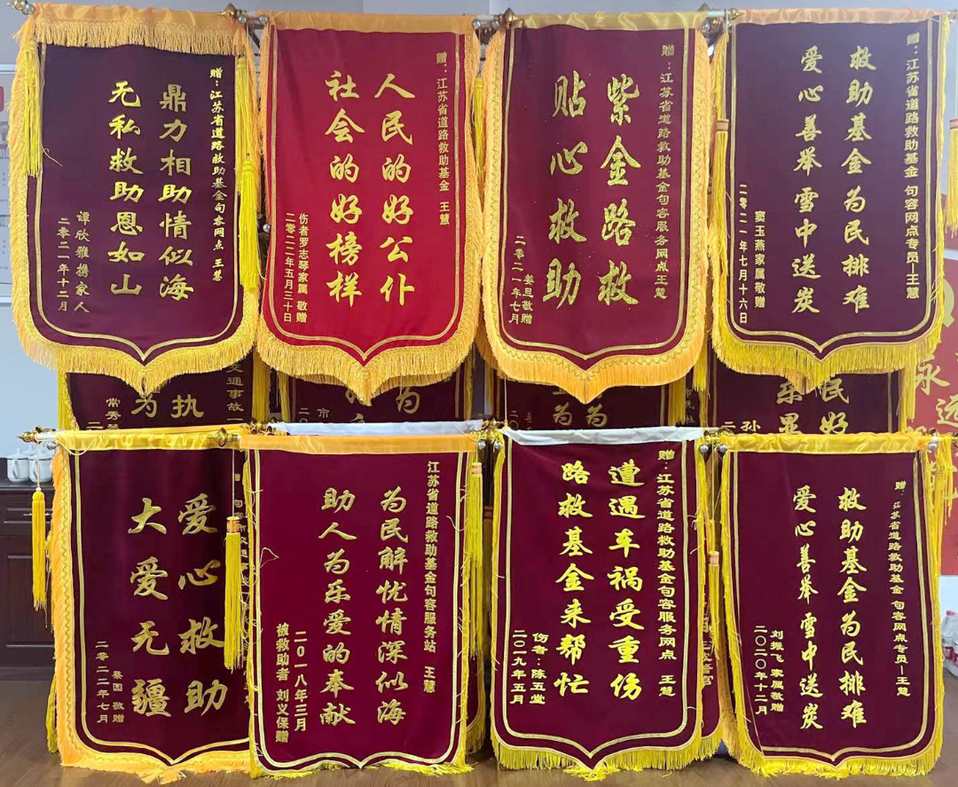 赠：江苏省道路救助基金句容网点 王慧
鼎力相助情似海
无私救助恩如山
谭欣雅携家人
二零二一年十二月
赠：江苏省道路救助基金 王慧
人民的好公仆
社会的好榜样
伤者罗志琴家属 敬赠
二零二二年五月三十日
赠：江苏省道路救助基金句容服务网点王慧
紫金路救
贴心救助
姜旦敬赠
二零二一年七月
赠：江苏省道路救助基金 句容网点专员—王慧
救助基金为民排难
爱心善举雪中送炭
窦玉燕家属敬赠
二零二一年七月十六日
交通事故
执
为
常秀
为
市
为
为
民好
孙
永远
爱心救助
大爱无疆
敬赠
二零二二年七月
江苏省道路救助基金句容服务站 王慧
为民解忧情深似海
助人为乐爱的奉献
二〇一八年三月
被救助者 刘义保赠
赠：江苏省道路救助基金句容服务网点 王慧
遭遇车祸受重伤
路救基金来帮忙
伤者：陈五堂
二〇一九年五月
赠：江苏省道路救助基金 句容网点专员—王慧
救助基金为民排难
爱心善举雪中送炭
刘振飞家属敬赠
二〇二〇年十二月